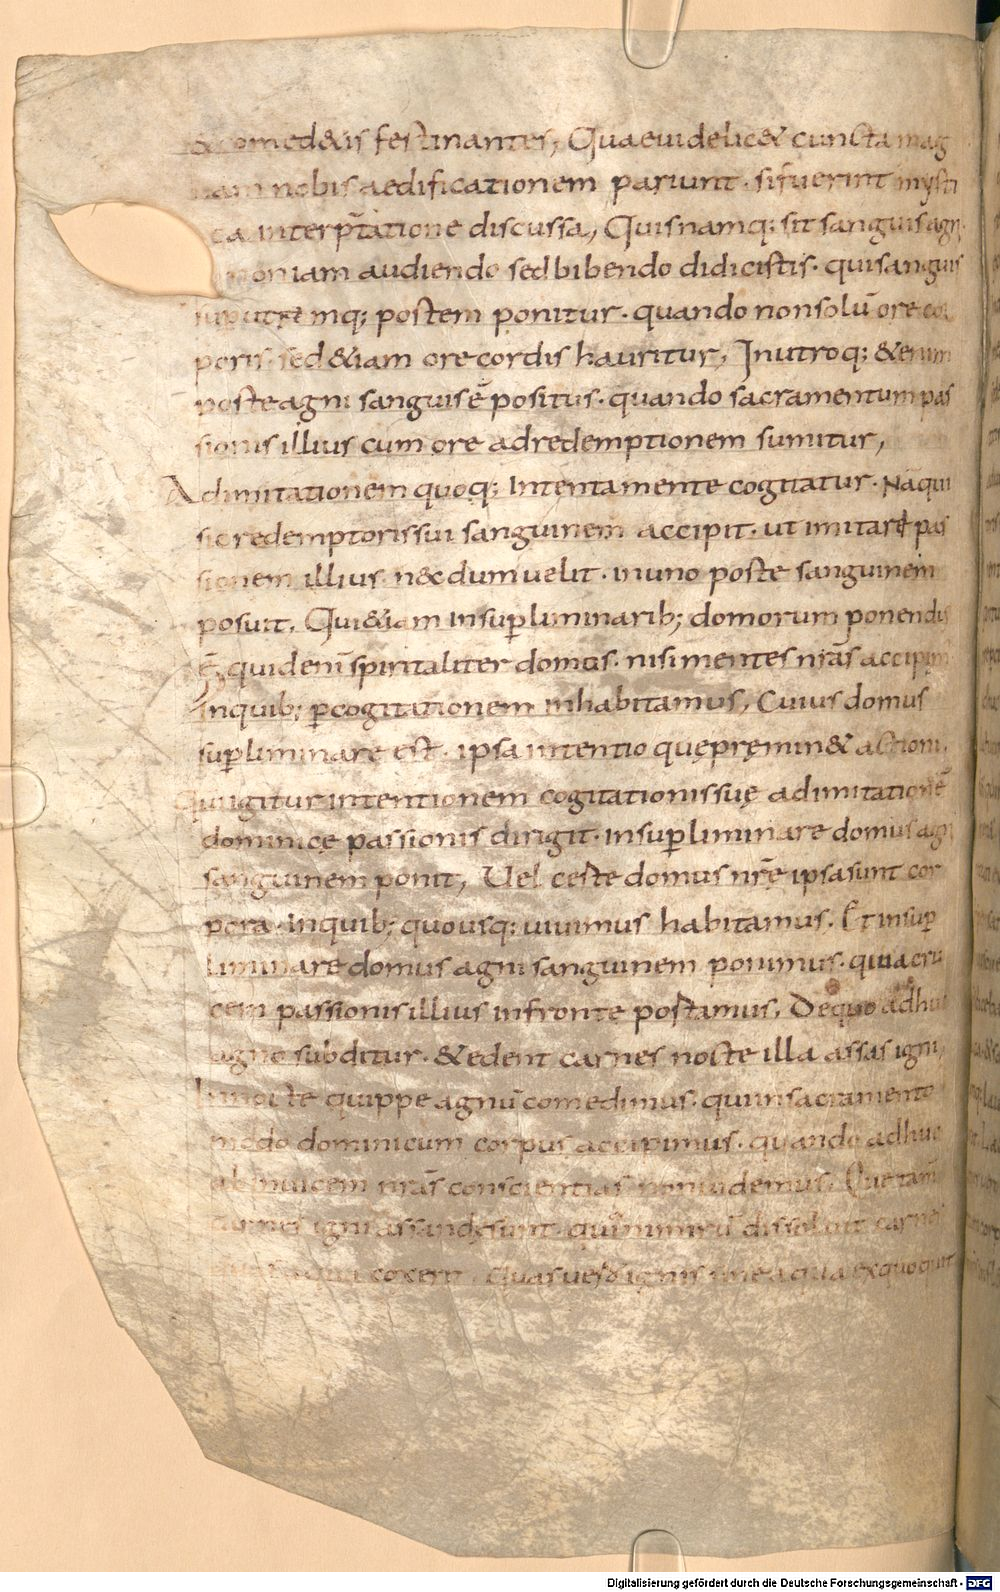 & comed&is festinantes, Quae uidelic& cuncta mag
nam nobis aedificationem pariunt · si fuerint mysti
ca interp̄tatione discussa, Quis namq; sit sanguis agni
non iam audiendo sed bibendo didicistis · qui sanguis
sup utrēmq; postem ponitur · quando non solū ore cor
poris · sed &iam ore cordis hauritur, In utroq; &enim
poste agni sanguis ē positus · quando sacramentum pas
sionis illius cum ore ad redemptionem sumitur,
Ad imitationem quoq; Intenta mente cogitatur · Nā qui
sic redemptoris sui sanguinem accipit · ut imitare pas
sionem illius n&c dum uelit · in uno poste sanguinem
posuit. Qui &iam In sup̄liminarib; domorum ponendus
ē, quid enī spiritaliter domus · nisi mentes nr̄as accipim
Inquib; p̄ cogitationem inhabitamus, Cuius domus
sup̄liminare est · ipsa intentio quę pręmin& actioni.
Qui igitur intentionem cogitationis suę ad imitationē
dominicę passionis dirigit · in sup̄liminare domus agni
sanguinem ponit, Uel certe domus nr̄ę ipsa sunt cor
pora · In quib; quo usq; uiuimus habitamus. Et in sup̄
liminare domus agni sanguinem ponimus · quia cru
cem passionis illius in fronte portamus. De quo adhuc
agno subditur · & edent carnes nocte illa assas igni,
In nocte quippe agnū comedimus · qui in sacramento
modo dominicum corpus accipimus · quando adhuc
ab inuicem nr̄as conscientias non uidemus. Quę tam̄
carnes igni assandę sunt · quia nimirū dissoluit carnes
quas aqua coxerit. Quas uero ignis sine aqua exquoquit
Digitalisierung gefördert durch die Deutsche Forschungsgemeinschaft - DFG